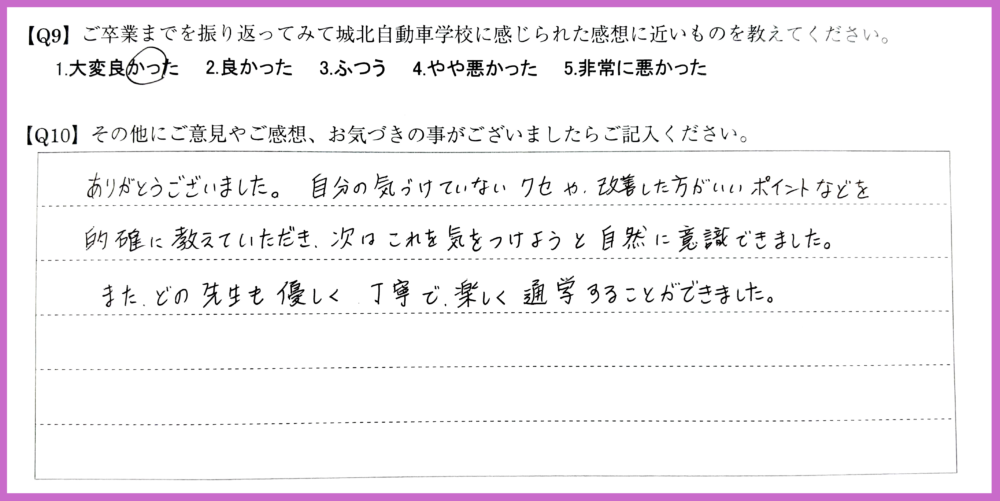 【Q9】ご卒業までを振り返ってみて城北自動車学校に感じられた感想に近いものを教えてください。
1.大変良かった 2.良かった 3.ふつう 4.やや悪かった 5.非常に悪かった
【Q10】その他にご意見やご感想、お気づきの事がございましたらご記入ください。
ありがとうございました。 自分の気づけていないクセや、改善した方がいいポイントなどを
的確に教えていただき、次はこれを気をつけようと自然に意識できました。
また、どの先生も優しく、丁寧で、楽しく通学することができました。